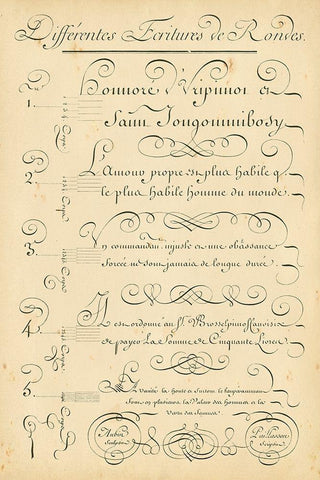 Différentes Ecritures de Rondes.
1.
Honnoré d'Vripinnoi et
Saint Jongonnnibosy
2.
L'Amour propre est plus habile q.
le plus habile homme du monde.
3.
Vn commandan. injuste et une obéissance
forcée ne sont jamais de longue durée.
4.
Il est ordonné au Sr. Brosselpinoffanoise
de payer La Somme de Cinquante Livres
5.
La Vanité, la honte et Surtout le temperamment
Sont en plusieurs, la Valeur des hommes et la
Vertu des femmes.
Aubin
Sculpsit
Paillasson
Scripsit